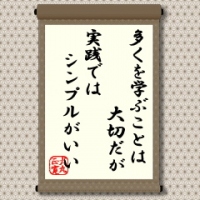 多くを学ぶことは
大切だが
実践では
シンプルがいい